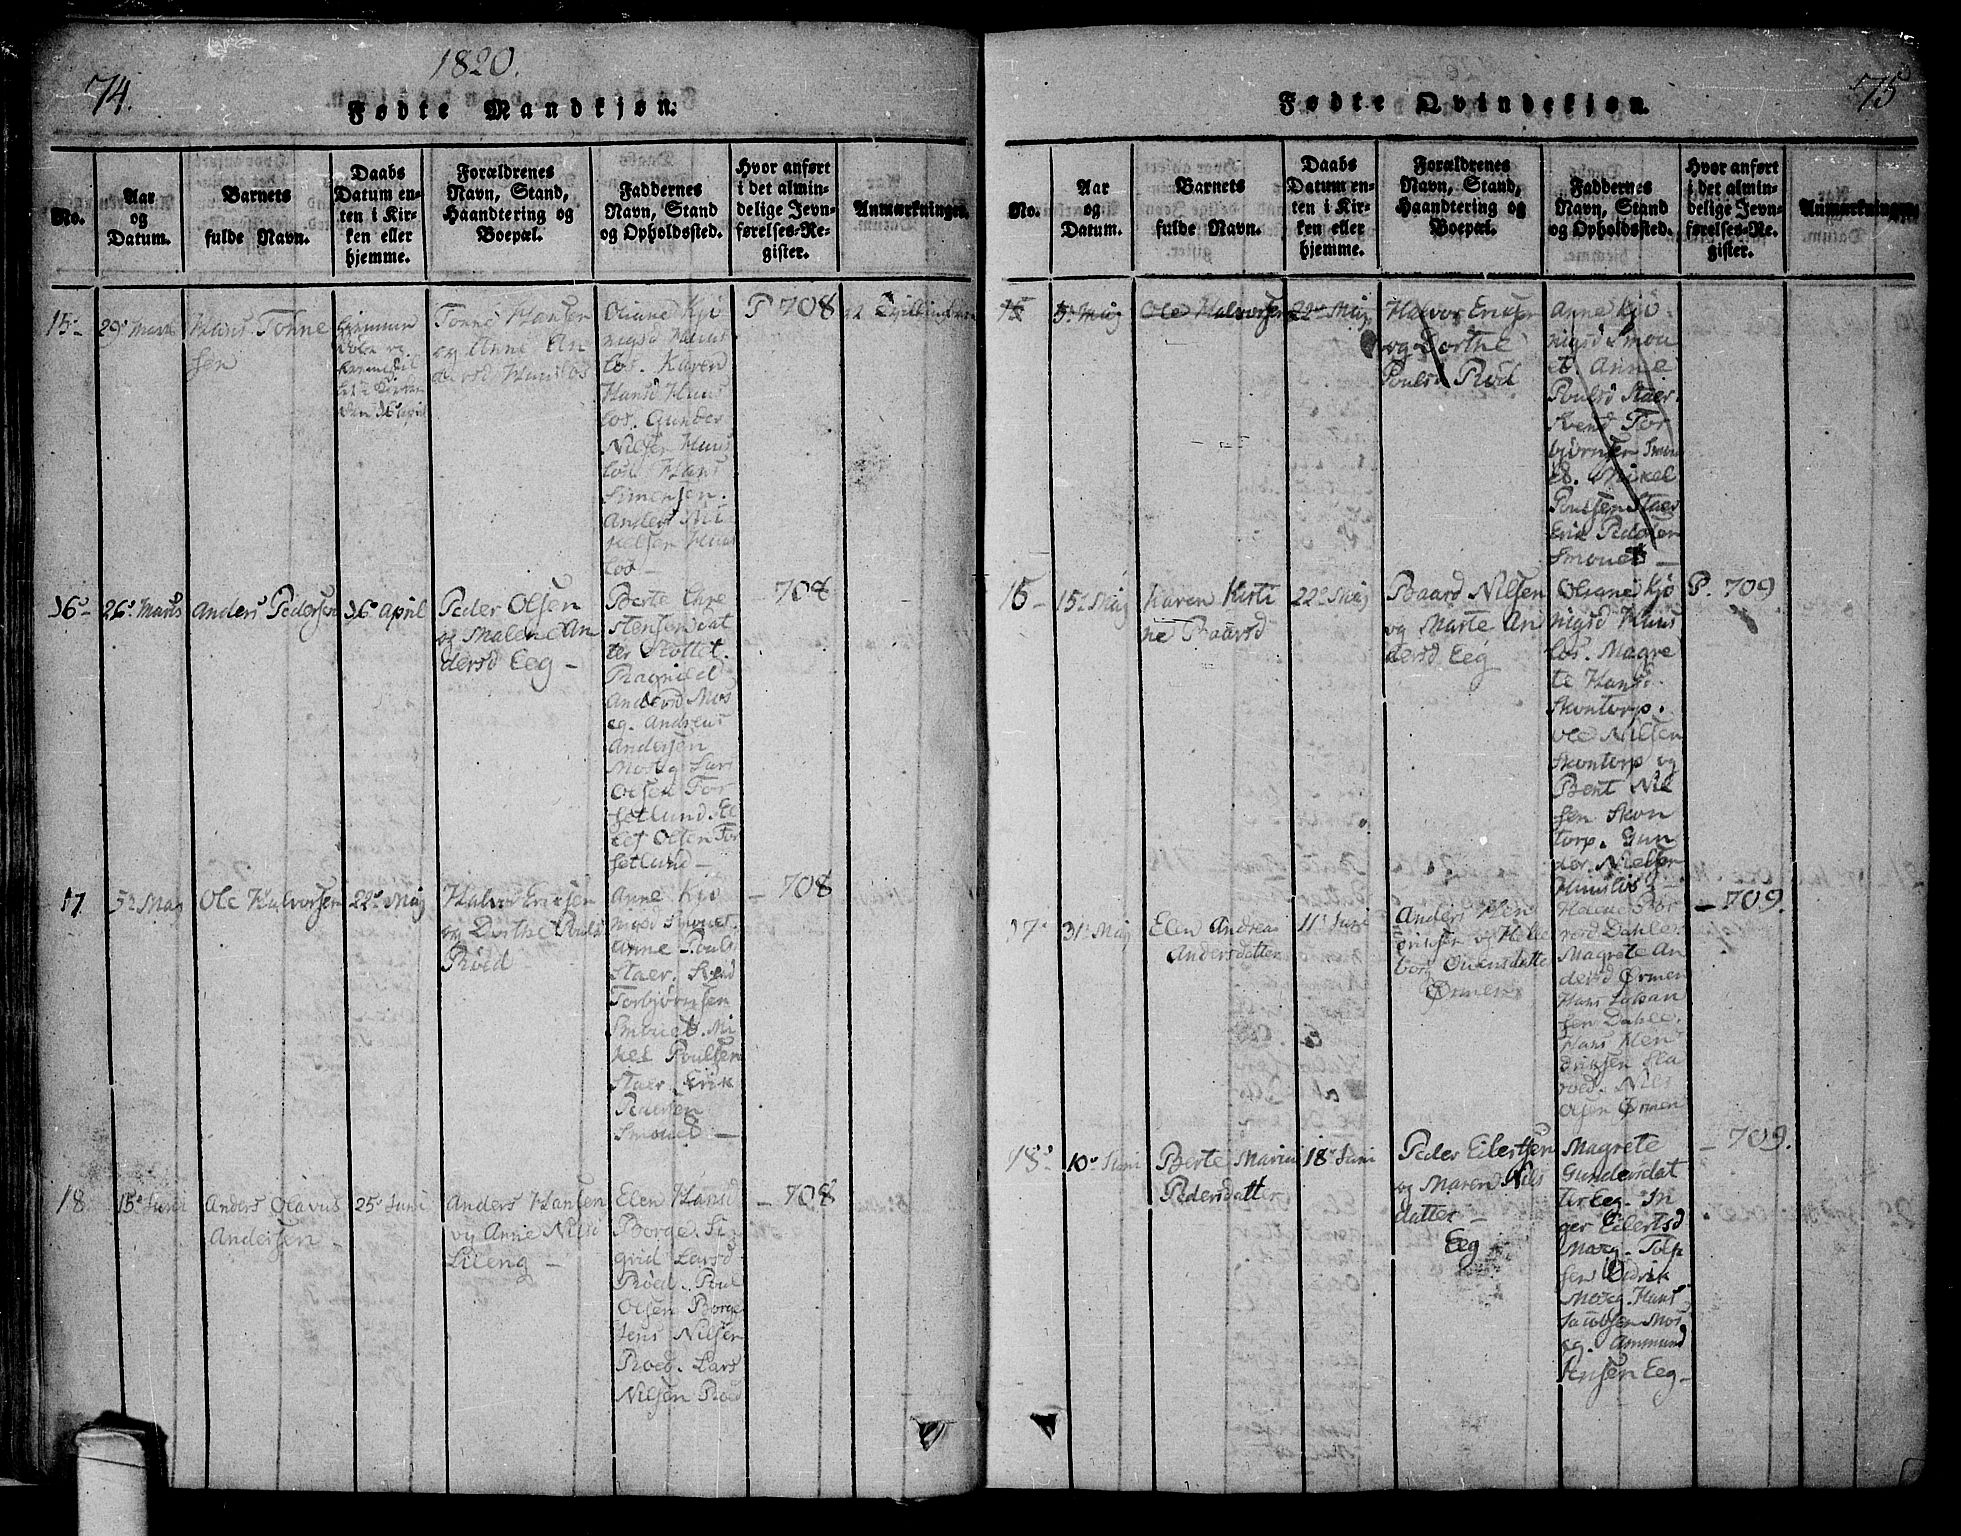 74.
1820.
Fødte Mandkjøn.
No.
Aar
og
Datum.
Barnets
fulde Navn.
Daabs
Datum en-
ten i Kir-
ken eller
hjemme.
Forældrenes
Navn, Stand,
Haandtering og
Boepæl.
Faddernes
Navn, Stand
og Opholdssted.
Hvor anført
i det almin-
delige Jevn-
førelses-Re-
gister.
Anmærkninger.
15
29 Marts
Hans Tohne
sen
Tonne Hansen
og Anne An
dersd Hunslos
Oliane Kjø
nigsd Huns
los. Karen
Hansd Huns
los. Gunder
Nilsen Huns
los Hans
Simensen.
Anders Mi
kelsen Huns
los
P 708
16
26 Marts
Anders Pedersen
16 April
Peder Olsen
og Malene An
dersd Eeg
Berte Chre
stensen dat
ter Kottet.
Ragnild
Andersd Mos
eg. Andreas
Andersen
Moseg Lars
Olsen Tor
setlund. El
lef Olsen Tor
setlund
708
17
5 Maj
Ole Halvorsen
22 Maj
Halvor Ericsen
og Dorthe Pouls
Røed
Anne Kjø
nigsd Smouet
Anne Pouls
Staer. Svend
Torbjørnsen
Smouet. Mi
kel Poulsen
Staer. Erik
Pedersen
Smouet
708
18
15 Juni
Anders Olavus
Andersen
25 Juni
Anders Hansen
og Anne Nilsd
Lileng
Elen Hansd
Borge. Si
grid Larsd
Røed. Poul
Olsen Borge
Jens Nilsen
Roed. Lars
Nilsen Røed
708
75
Fødte Qvindekjøn.
No.
Aar
og
Datum.
Barnets
fulde Navn.
Daabs
Datum en-
ten i Kir-
ken eller
hjemme.
Forældrenes
Navn, Stand,
Haandtering og
Boepæl.
Faddernes
Navn, Stand
og Opholdssted.
Hvor anført
i det almin-
delige Jevn-
førelses-Re-
gister.
Anmærkninger.
5 Maj
Ole Halvorsen
22 Maj
Halvor Ericsen
og Dorthe
Poulsd Røed
Anne Kjø
nigsd Smou
et. Anne
Poulsd Staer.
Svend Tor
bjørnsen Smou
et. Mikel
Poulsen Staer
Erik Pedersen
Smouet
16
15 Maj
Karen Kirsti
ne Baarsd
22 Maj
Baard Nilsen
og Marte An
dersd Eeg
Oliane Kjø
nigsd Huns
los. Magre
te Hans.
Skontorp.
Ole Nilsen
Skontorp og
Bent Nil
sen Skon
torp. Gun
der Nielsen
Hunslos
P. 709
17
31 Maj
Elen Andrea
Andersdatter
11 Juni
Anders Hen
driksen og Helle
borg Ovensdatte
Ørmen
Helene Tor
rersd Dahle.
Magrete An
dersd Ørmen
Hans Johan
sen Dahle.
Hans Hen
driksen Sla
roed. Nils
Olsen Ørmen
709.
18
10 Juni
Berte Marie
Pedersdatter
18 Juni
Peder Eilertsen
og Maren Nils
datter
Eeg
Magrete
Gundersdat
ter Eeg. In
ger Eilertsd
Moseg. Tolp
sen Edrik
Moseg. Hans
Jacobsen Mos
eg. Ammund
Jensen Eeg
709.